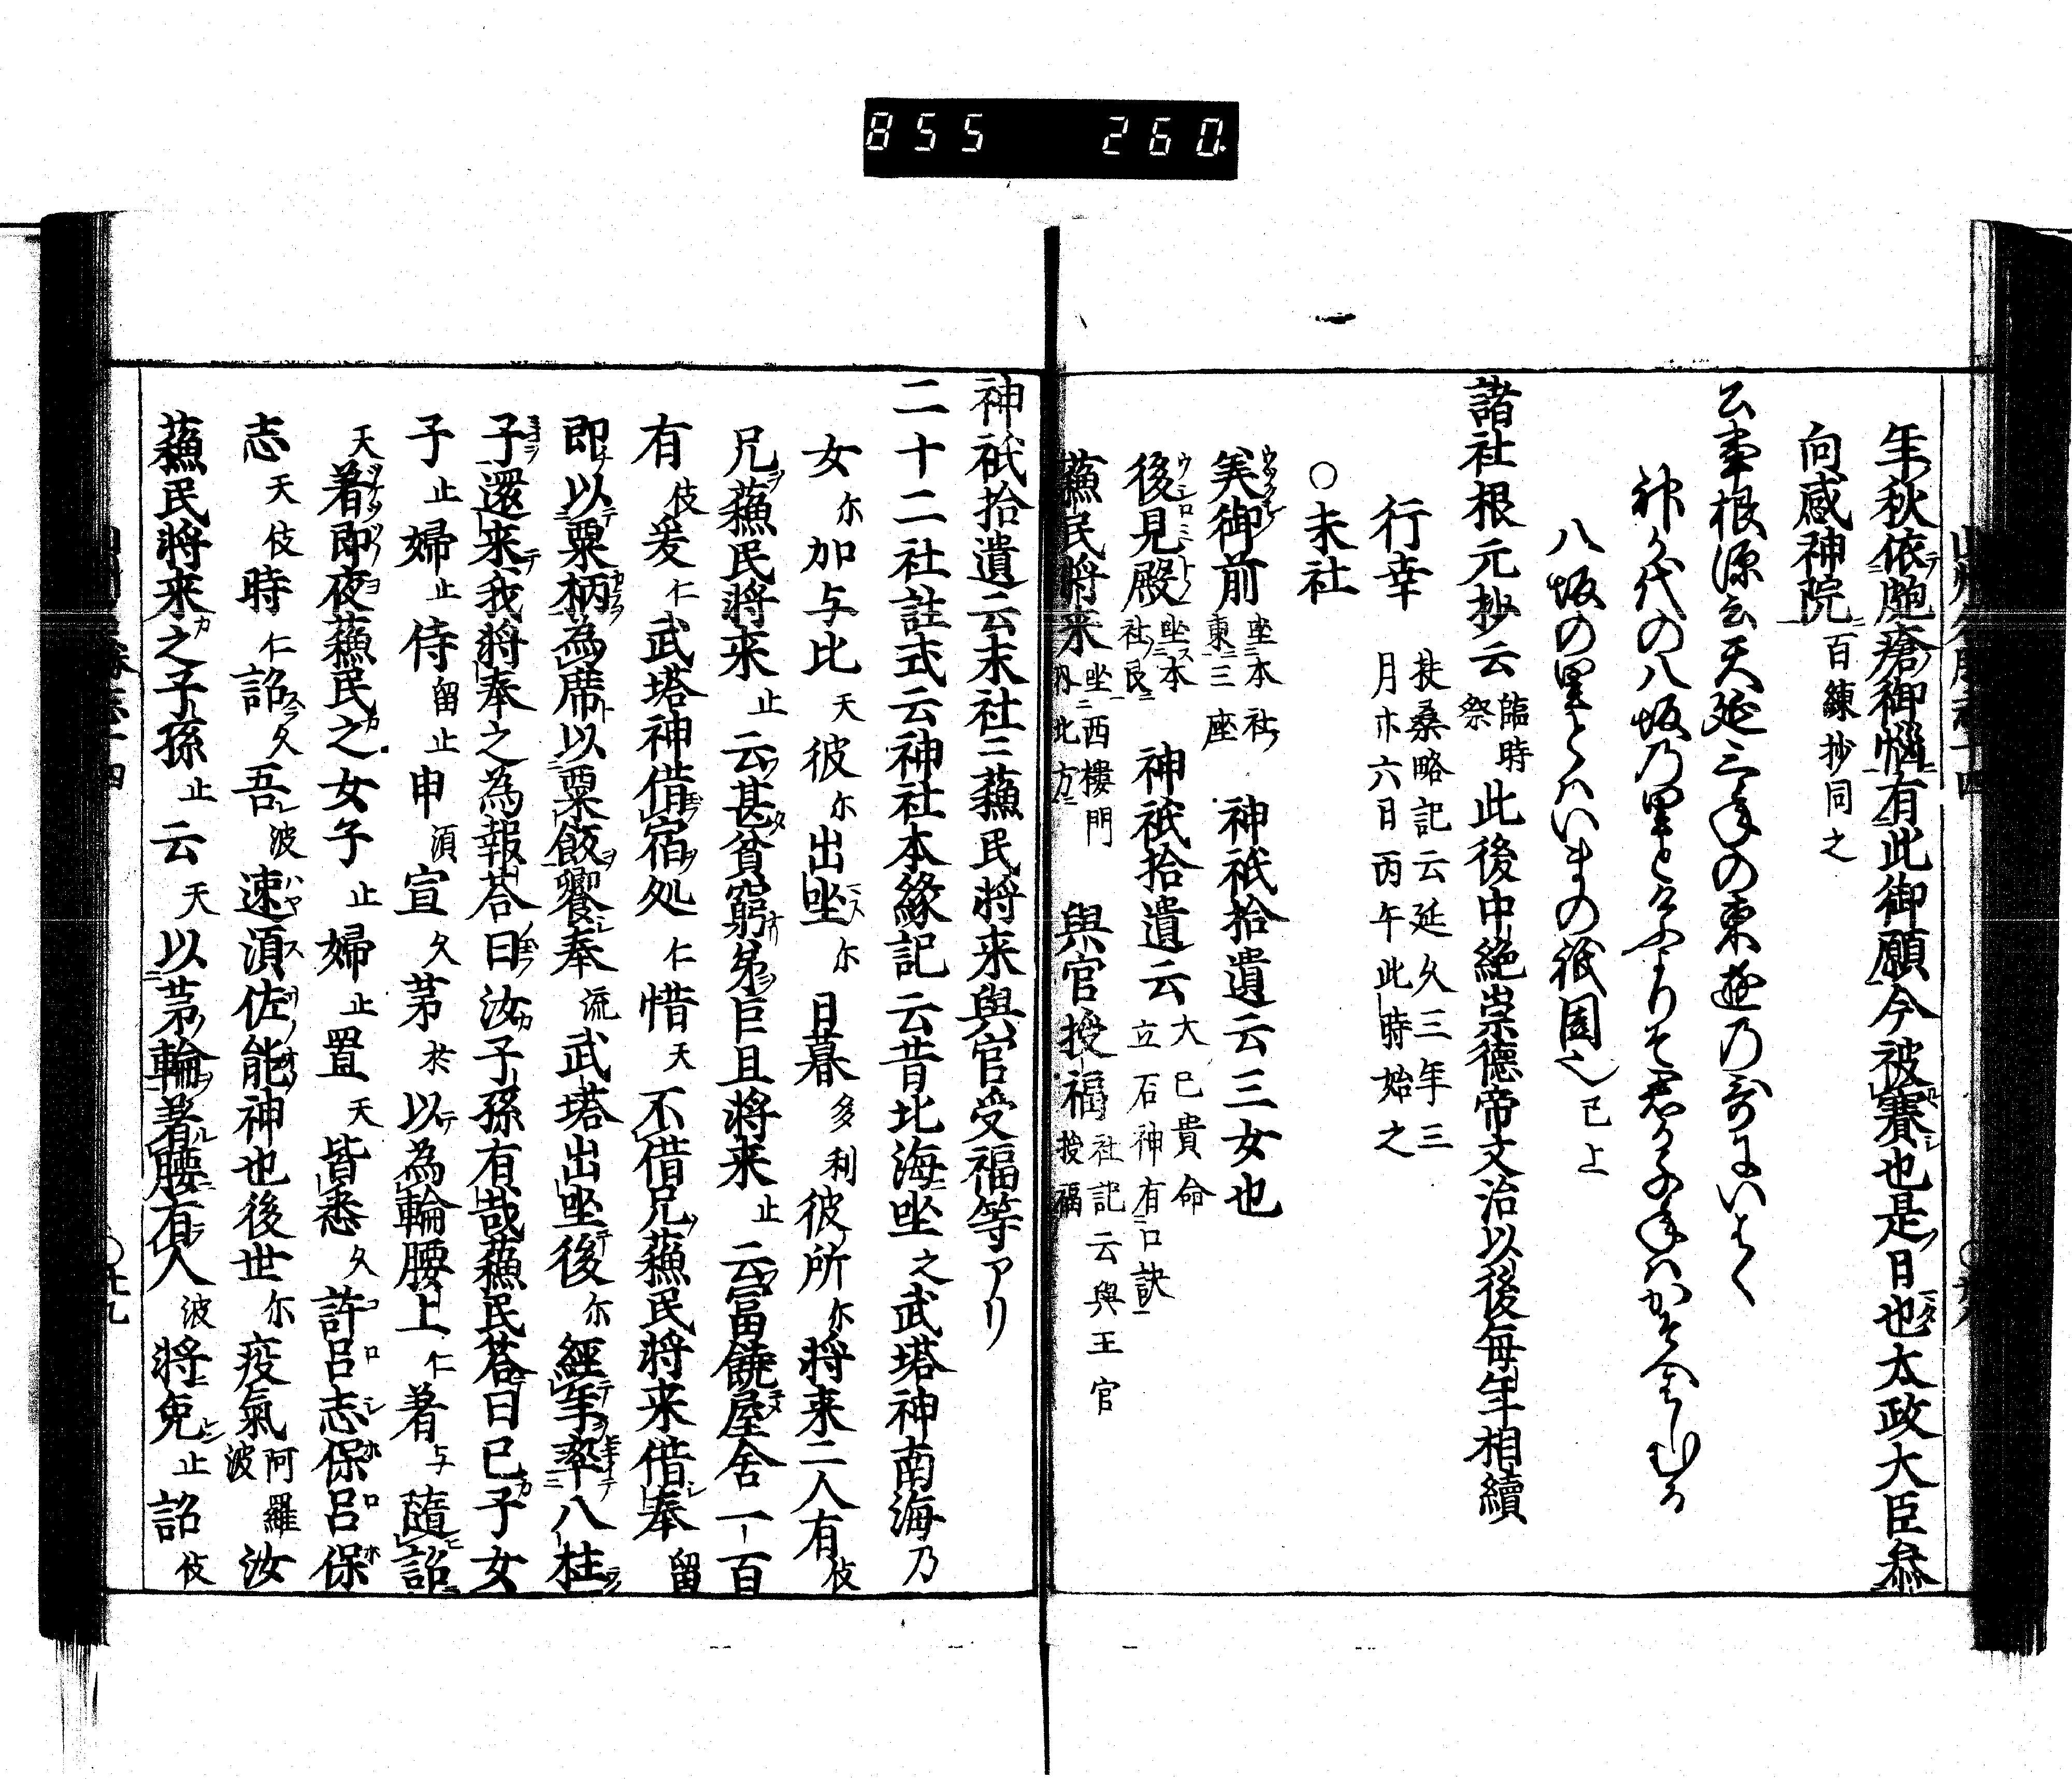 855 260
年秋依皰瘡御惱有此御願今被賽也是日也太政大臣叅
向感神院百練抄同之
公事根源云天延三年の東遊乃哥にいはく
神か代の八坂乃里とけふよりそ君か千年はかそへ
八坂の里とはいまの祇園也已上
諸社根元抄云臨時祭此後中絶崇德帝文治以後每年相續
行幸 扶桑略記云延久三年三月廿六日丙午此時始之
○末社
美御前座本社東三座 神祇拾遺云三女也
後見殿坐本社艮 神祇拾遺云大已貴命立石神有口訣
蘓民將来坐西樓門內北方 與官授福社記云與王官授福
神祇拾遺云末社ニ蘓民將来與官受福等アリ
二十二社註式云神社本緣記云昔北海坐之武塔神南海乃
女尓加与比天彼尓出坐尓日暮多利彼所尓將来二人有伎
兄蘓民將来止云甚貧窮弟巨且將来止云富饒屋舍一百
有伎爰仁武塔神借宿処仁惜天不借兄蘓民將来借奉留
即以粟柄為席以粟飯饗奉流武塔出坐後尓經年率八柱
子還来我將奉之為報荅曰汝子孫有哉蘓民荅曰已子女
子止婦止侍留止申湏宣久茅於以為輪腰上仁著与隨詔
天著即夜蘓民之女子止婦止置天皆悉久許呂志保呂保
志天伎時仁詔久吾波速湏佐能神也後世尓疫氣阿羅波汝
蘓民將来之子孫止云天以茅輪著腰有人波將免止詔伎